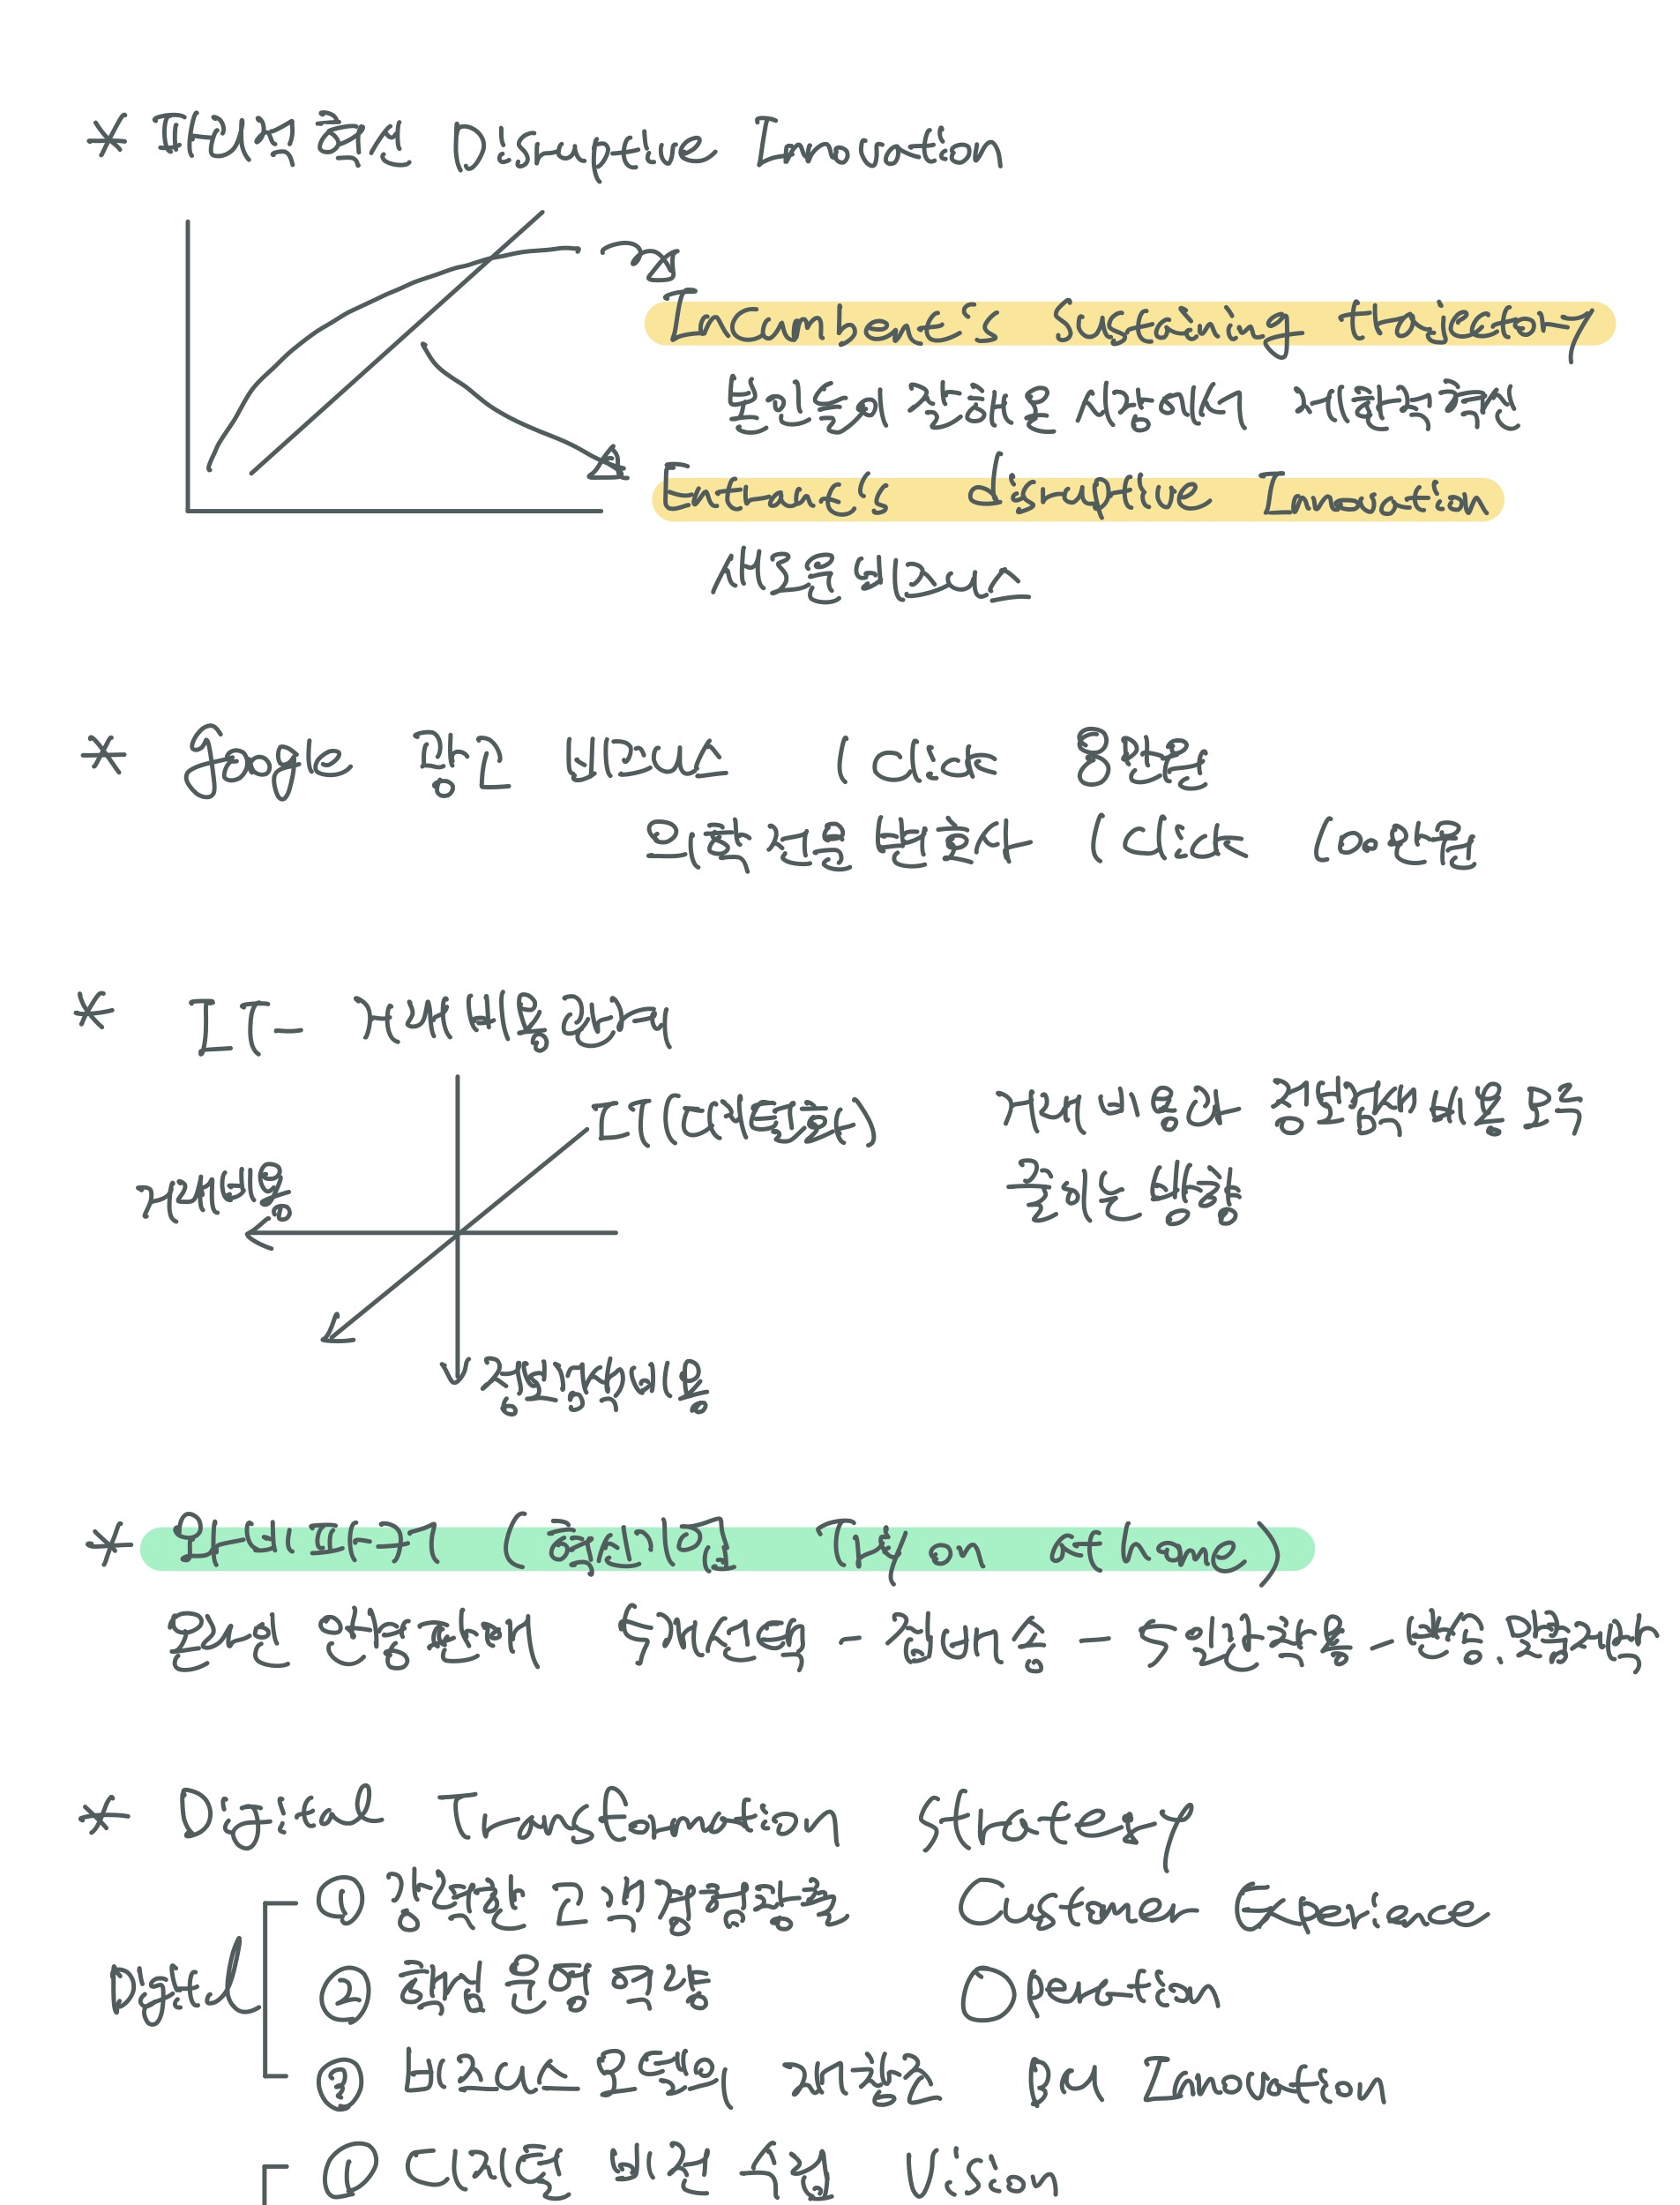 * 파괴적 혁신 Disruptive Innovation
Incumbent's sustaining thajectory
본인들이 잘해온 시장에서 제한적혁신
Entrant's disruptive Innovation
새로운 비즈니스
* Google 광고 비즈니스 1 click 8만원
의학전문변호사 1 click 100만원
* IT - 거래비용관계
IT(디지털전환) 거래비용과 정보탐색비용 모두
거래비용 줄이는 방향
정보탐색비용
* 와비파커 (혁신기업 Try on at home)
온라인 안경판매 5개선택 - 집배송 - 5일간착용 - 반송.맞춤제작
* Digital Transformation Strategy
① 강력한 고객경험창출 Customer Experience
② 핵심 운영 역량 Operation
Digital
③ 비즈니스 모델의 재창조 BM Innovation
① 디지털 비전 수립 Vision